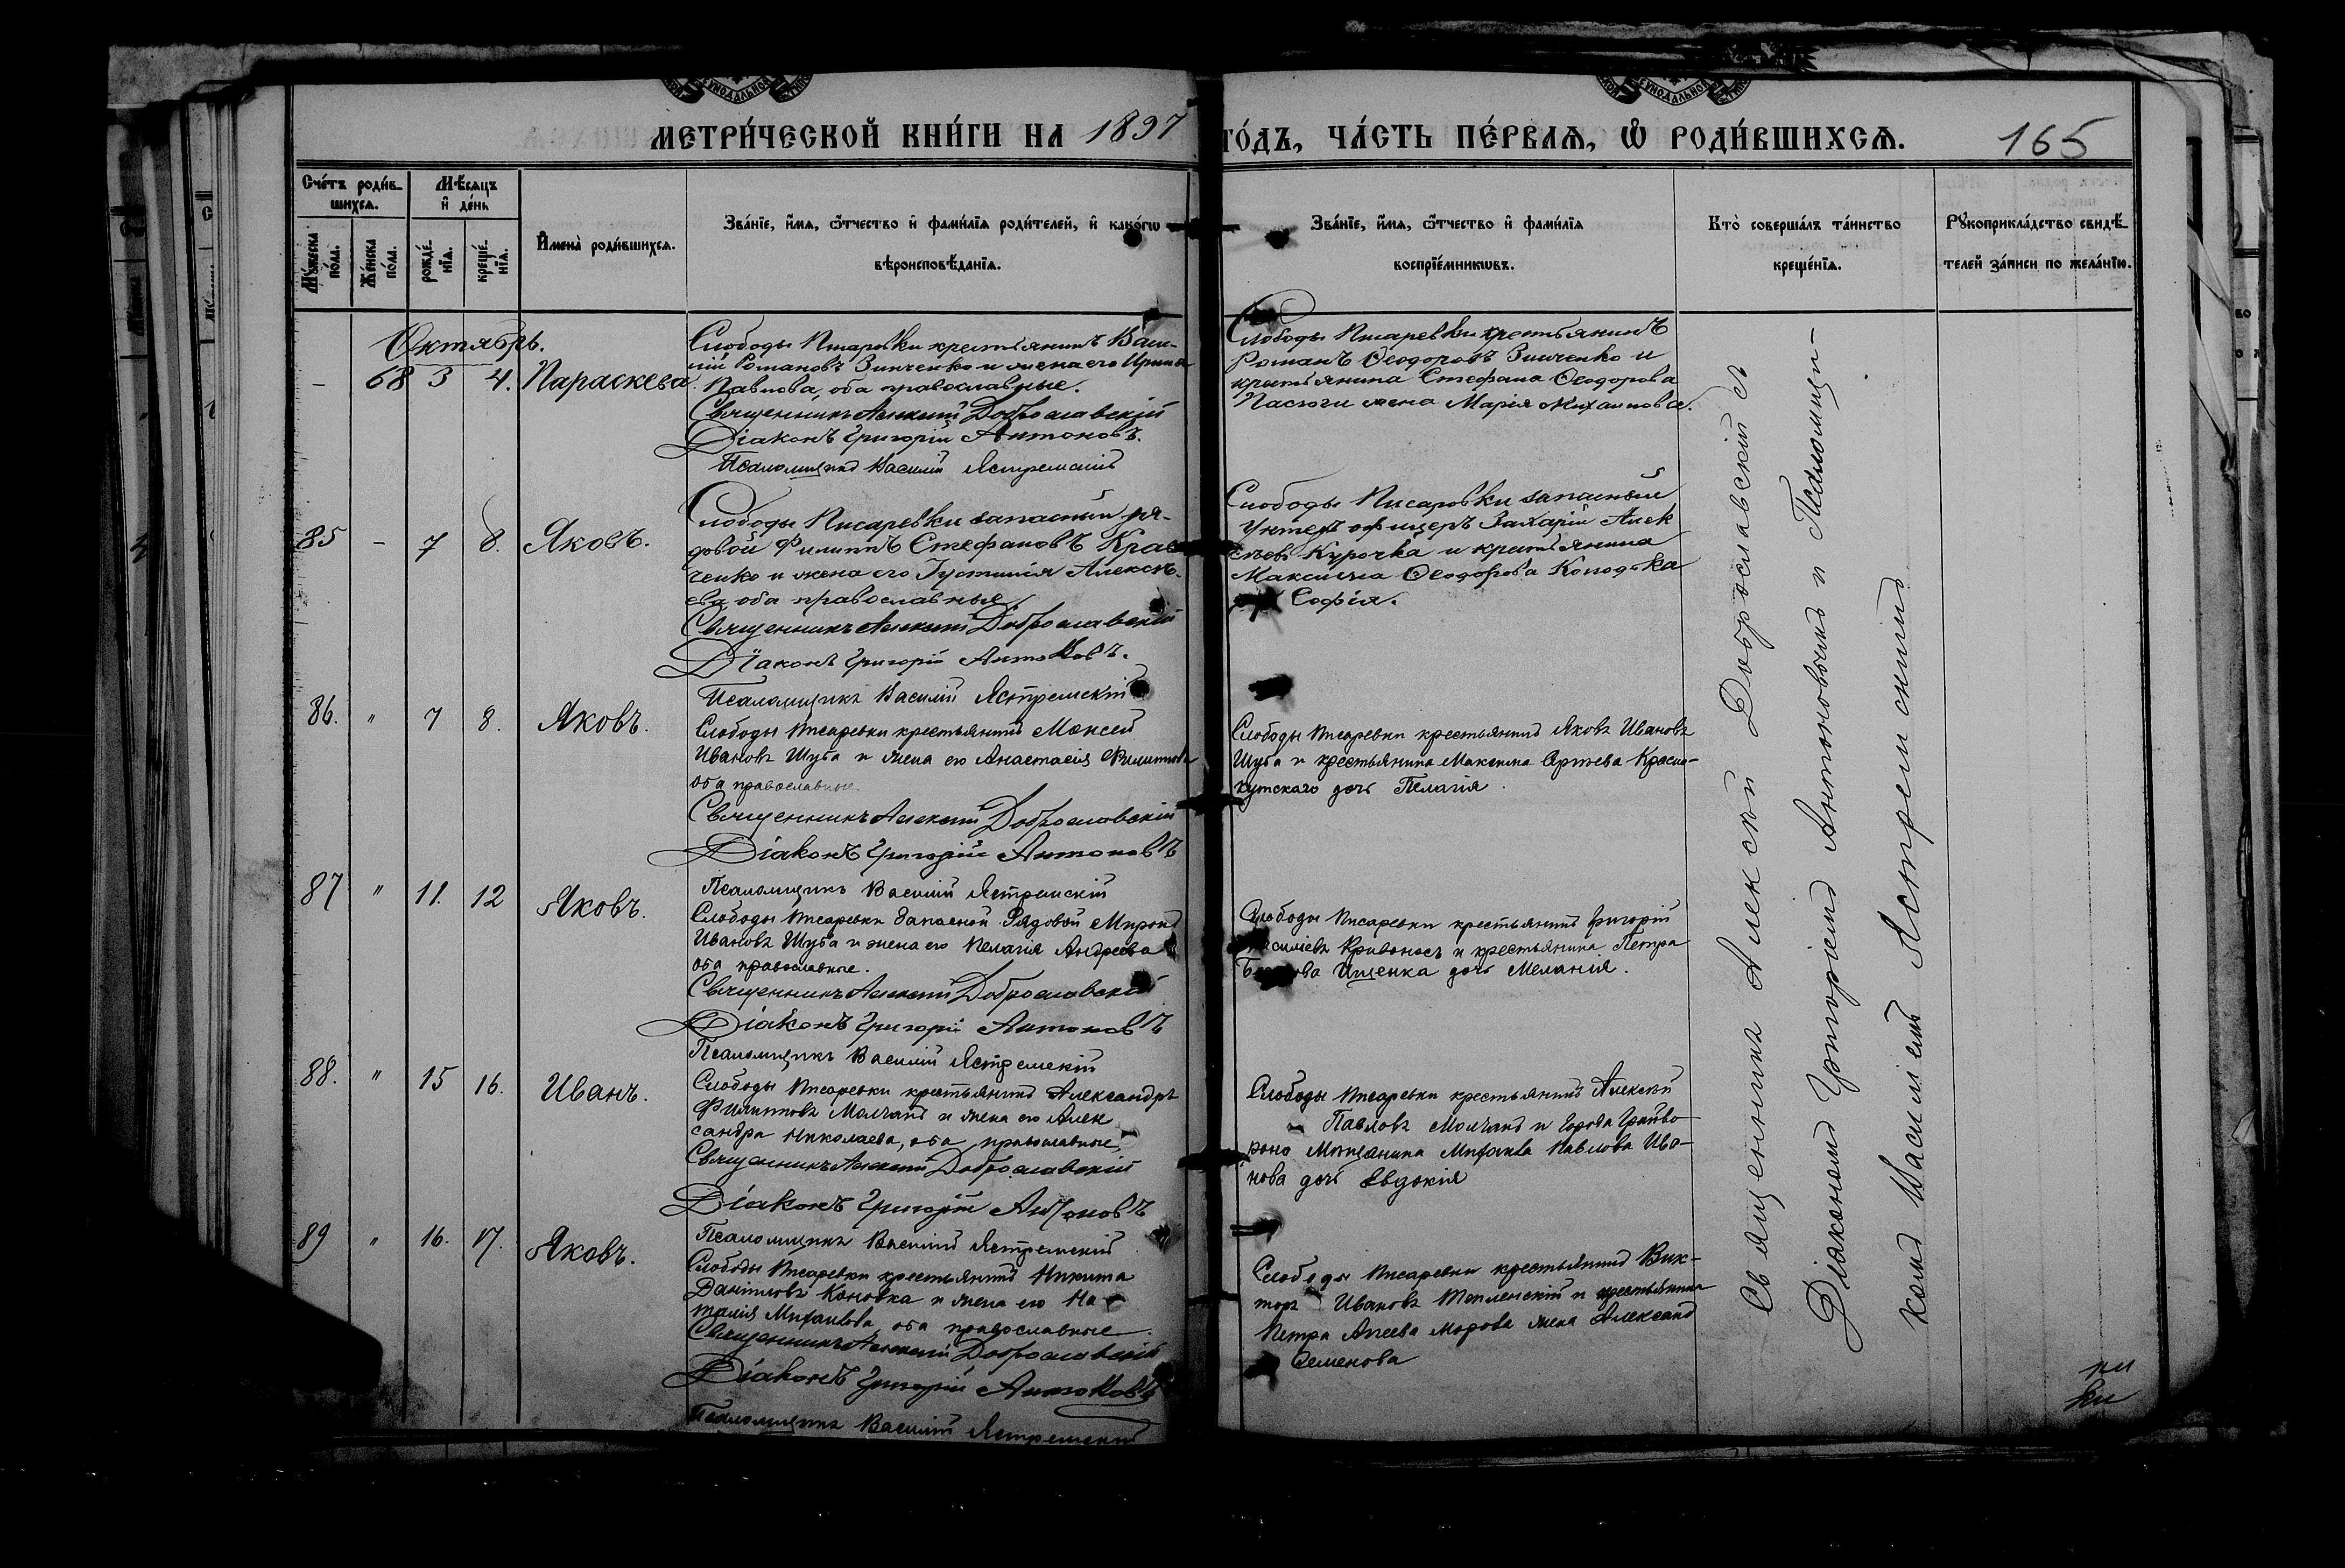 МЕТРИ́ЧЕСКОЙ КНИ́ГИ НА 1897 ГО́ДЪ, ЧА́СТЬ ПЕ́РВАЯ, Ѽ РОДИ́ВШИХСЯ. 165
Сче́тъ роди́вшихся.
Мѣ́сяцъ и҆ де́нь
Му́жеска по́ла.
Же́нска по́ла.
рожде́нїя.
креще́нїя.
И҆мена̀ роди́вшихся.
Зва́нїе, и҆́мя, ѻ҆́тчество и҆ фами́лїя роди́телей, и҆ како́гѡ
вѣроисповѣ́данїя.
Зва́нїе, и҆́мя, ѻ҆́тчество и҆ фами́лїя
воспрїе́мникѡвъ.
Кто̀ соверша́лъ та́инство
креще́нїя.
Рꙋкоприкла́дство свидѣ́
телей за́писи по жела́нїю.
Октябрь.
– 68 3 4. Параскева.
Слободы Писаревки крестьянинъ Васи-
лій Романовъ Зинченко и жена его Ирина
Павлова, оба православные.
Священникъ Алексій Доброславскій
Діаконъ Григорій Антоновъ.
Псаломщикъ Василій Ястремскій
Слободы Писаревки крестьянинъ
Романъ Ѳеодоровъ Зинченко и
крестьянина Стефана Ѳеодорова
жена Марія Михаилова.
85 – 7 8. Яковъ.
Слободы Писаревки запасный ря-
довой Филиппъ Стефановъ Крав
ченко и жена его Іустинія Алексѣ-
ева оба православные.
Священникъ Алексій Доброславскій
Діаконъ Григорій Антоновъ.
Псаломщикъ Василій Ястремскій
Слободы Писаревки запасный
Унтеръ офицеръ Захарій Алек
сѣевъ Курочка и крестьянина
Максима Ѳеодорова
Софія.
86. " 7 8. Яковъ.
Слободы Писаревки крестьянинъ Моисей
Ивановъ Шуба и жена его Анастасія Филиппова
оба православные.
Священникъ Алексій Доброславскій
Діаконъ Григорій Антоновъ
Псаломщикъ Василій Ястремскій
Слободы Писаревки крестьянинъ Яковъ Ивановъ
Шуба и крестьянина Максима Красно-
кутскаго дочь Пелагія.
87 " 11. 12 Яковъ.
Слободы Писаревки Запасной Рядовой Миронъ
Ивановъ Шуба и жена его Пелагія Андреева
оба православные.
Священникъ Алексій Доброславскій
Діаконъ Григорій Антоновъ
Псаломщикъ Василій Ястремскій
Слободы Писаревки крестьянинъ Григорій
Василіевъ Кривоносъ и крестьянина Петра
Ищенка дочь Меланія.
88. " 15 16. Иванъ.
Слободы Писаревки крестьянинъ Александръ
Филипповъ Молчанъ и жена его Алек
сандра Николаева, оба православные,
Священникъ Алексій Доброславскій
Діаконъ Григорій Антоновъ
Псаломщикъ Василій Ястремскій
Слободы Писаревки крестьянинъ Алексѣй
Павловъ Молчанъ и города Грайво-
рона Мѣщанина Михаила Павлова Ива-
нова дочь Евдокія
89 " 16. 17. Яковъ.
Слободы Писаревки крестьянинъ Никита
Даніиловъ Коновка и жена его На
талія Михаилова, оба православные.
Священникъ Алексій Доброславскій
Діаконъ Григорій Антоновъ
Псаломщикъ Василій Ястремскій
Слободы Писаревки крестьянинъ Вик-
торъ Ивановъ и крестьянина
Петра жена Александ
Семенова
Священникъ Алексѣй Доброславскій съ
Діакономъ Григоріемъ Антоновымъ и Псаломщи-
комъ Василіемъ Ястремскимъ